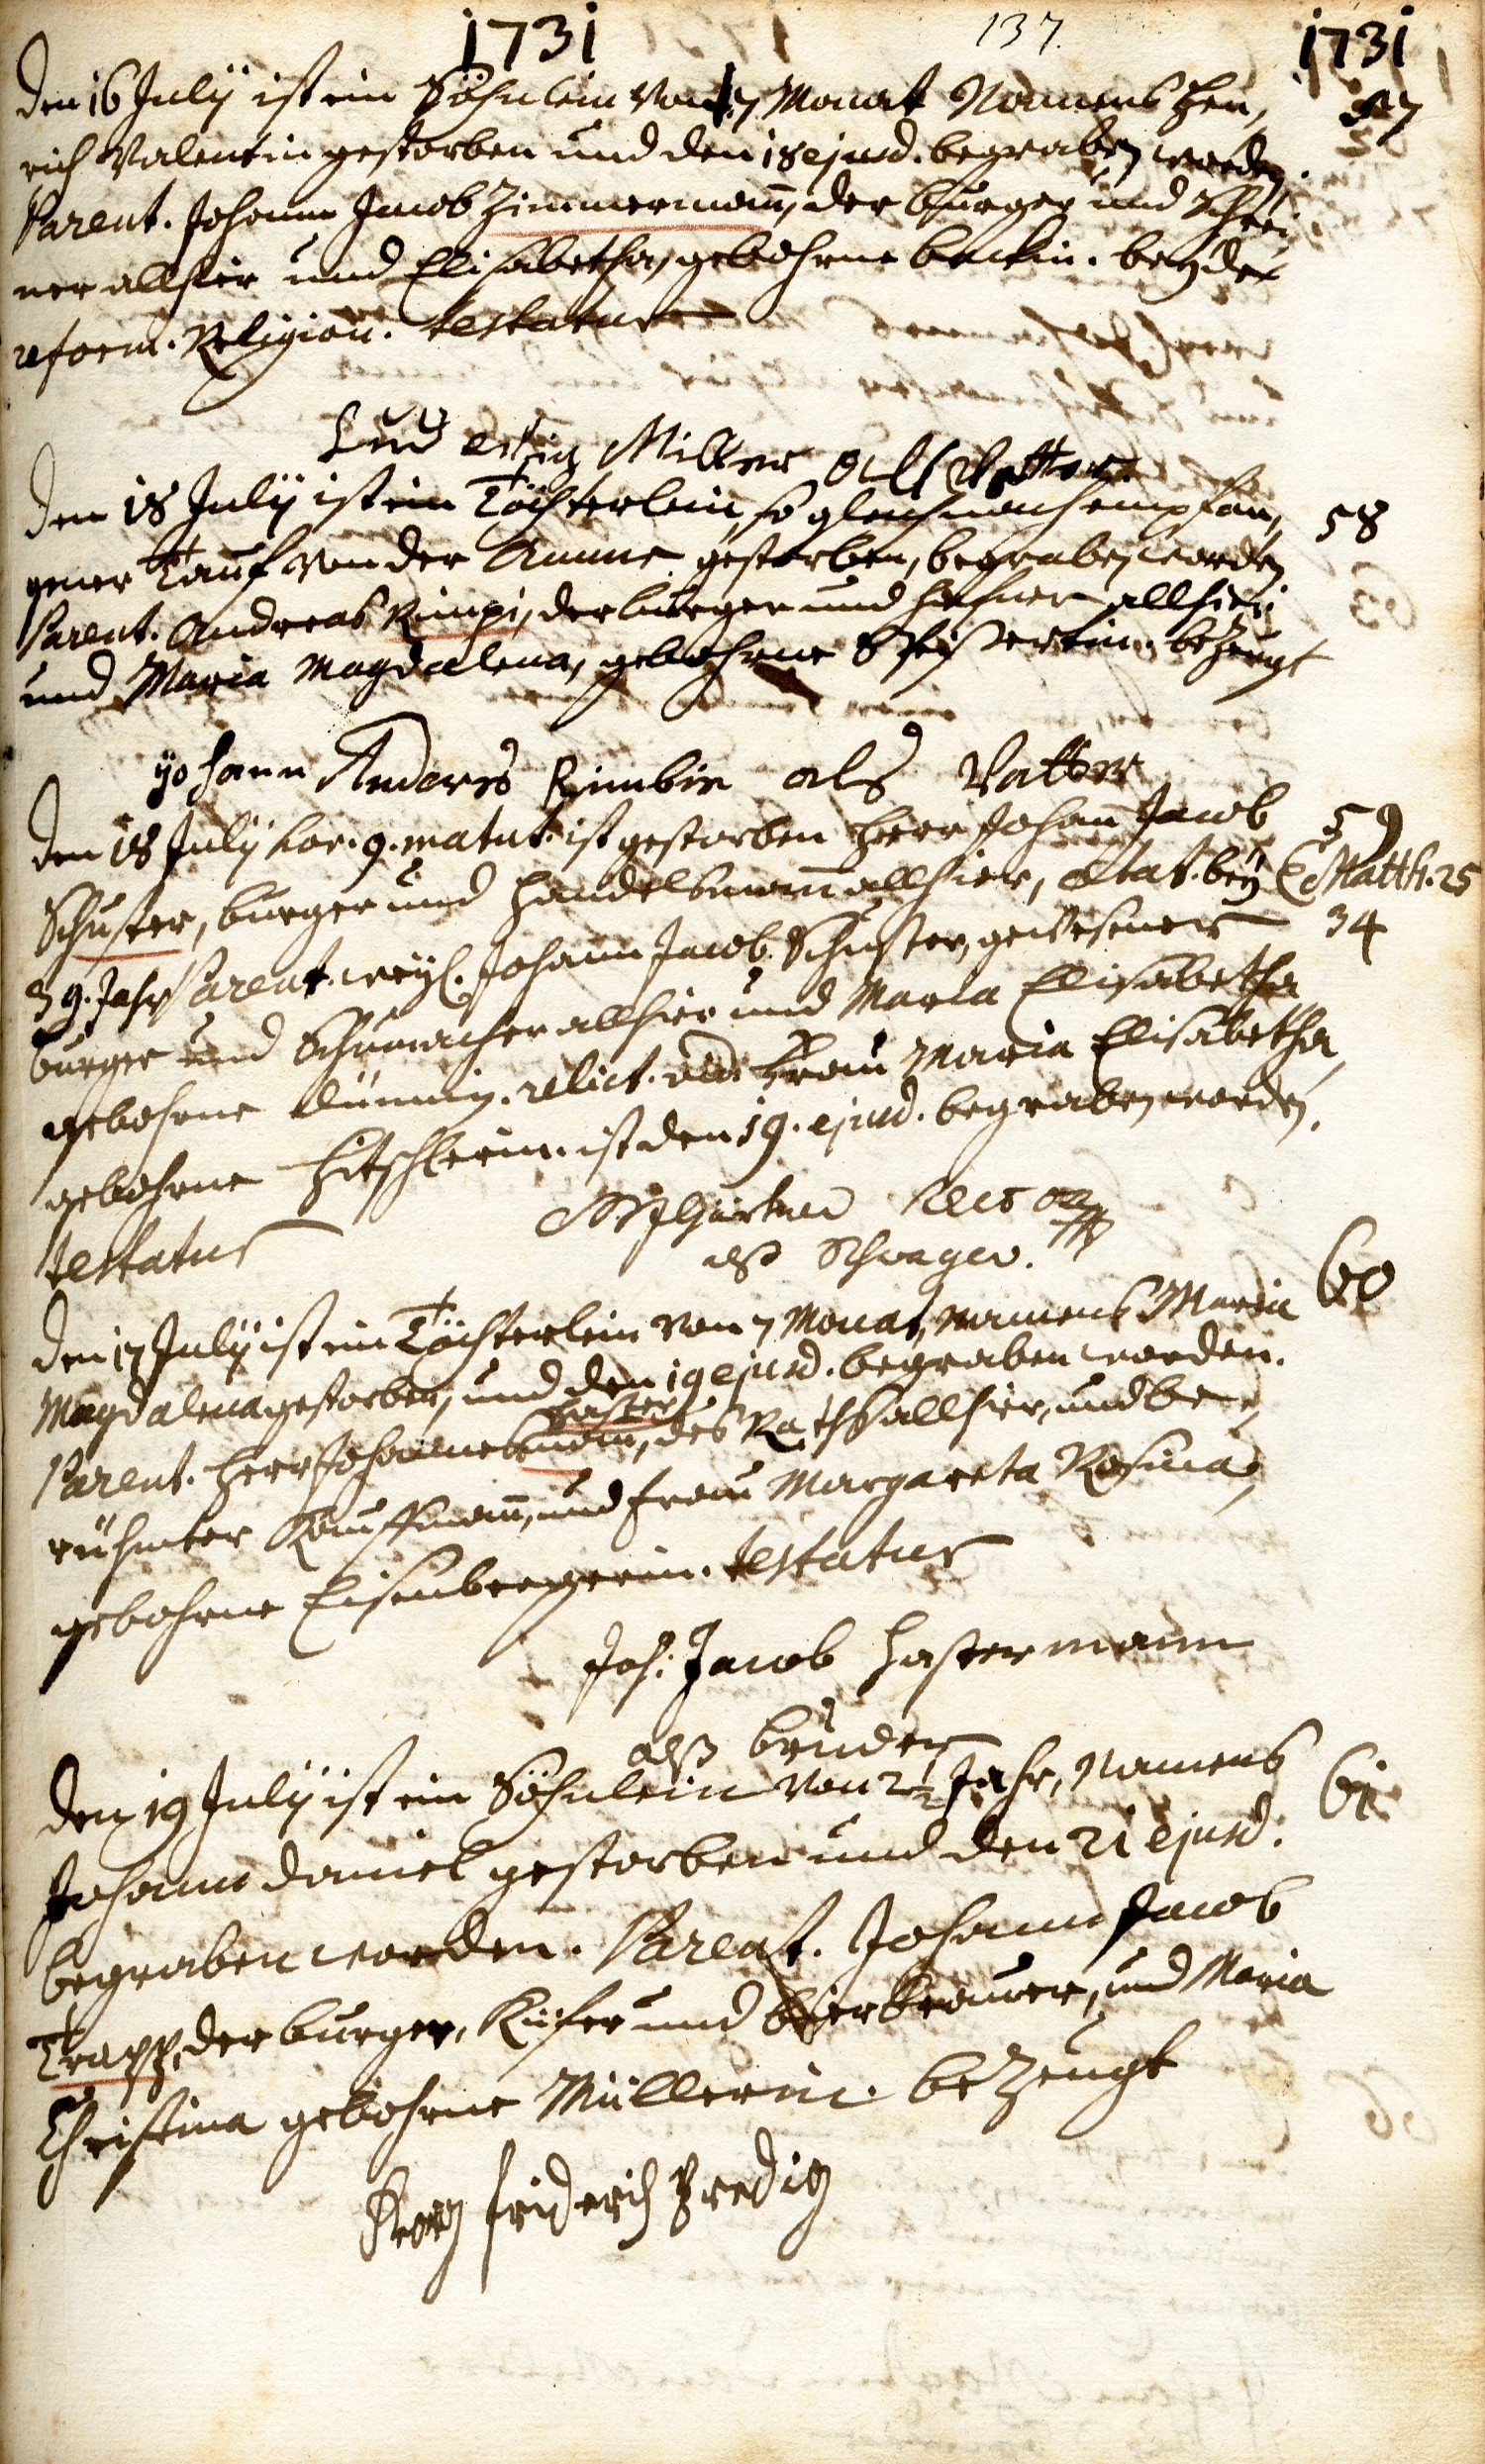 1731 137. 1731
den 16 July ist ein Söhnlein von 7 Monat Namens Hen, 57
rich Valentin gestorben und den 18 ejusd. begraben worden.
Parent. Johann Jacob Zimmermañ, der burger und Schrei
ner allhier und Elisabetha, gebohrne beckin. beyder
reform. Religion. testatur
Ludewig Miller als Vatter
den 18 July ist ein Töchterlein, so gleich nach empfan, 58
gener Tauf von der Amme gestorben, begraben worden
Parent. Andreas Rimpi, der burger und Hafner allhier
und Maria Magdalena, gebohrne bezeugt
Johann Anderes Rimbie als Vatter
den 18 July hor. 9. matut. ist gestorben Herr Johañ Jacob 59
Schuster, burger und Handelsmañ allhier, ætat. bey Matth. 25
39. Jahr Parent. weyl. Johann Jacob Schuster, gewesener 34
burger und Schumacher allhier und Maria Elisabetha
gebohrne relict. vid. Frau Maria Elisabetha,
gebohrne Hitschlerin. ist den 19. ejusd. begraben worden.
testatur
als Schwager.
den 17 July ist ein Töchterlein von 7 Monat, namens Maria 60
Magdalena gestorben, und den 19 ejusd. begraben worden.
Haster
Parent. Herr Johannes mañ, des Raths allhier, und be,
rühmter Kauffmañ, und Frau Margareta Rosina,
gebohrne Eisenbergerin. testatur
Joh: Jacob Hastermann
alß bruder
den 19 July ist ein Söhnlein von 2½ Jahr, Namens 61
Johann Daniel gestorben und den 21 ejusd.
begraben worden. Parent. Johann Jacob
Trapp, der burger, Küfer und bierbrauer, und Maria
Christina gebohrne Müllerin. bezeugt
Georg Friderich Bredig